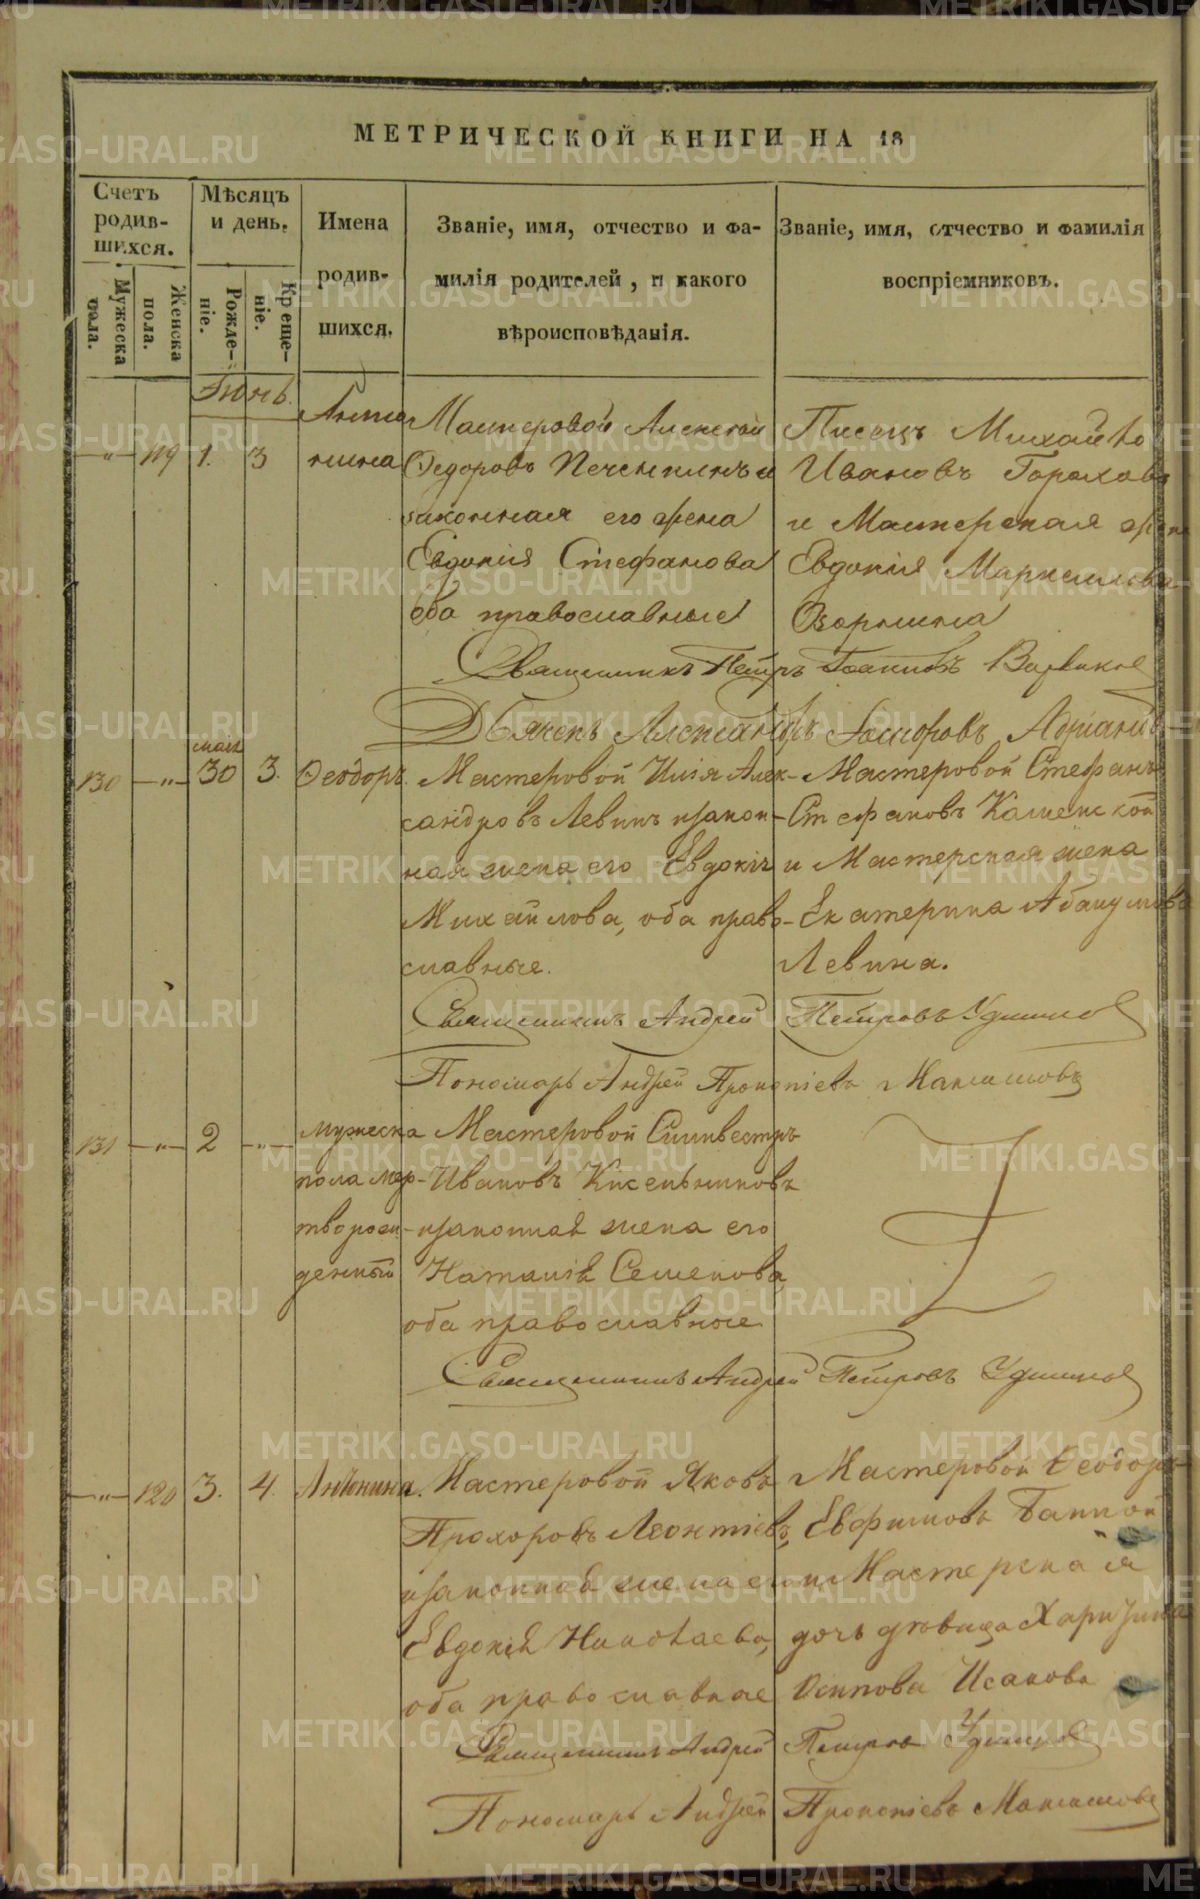 МЕТРИЧЕСКОЙ КНИГИ НА 18
Счетъ родив-шихся.
Мужеска пола.
Женска пола.
Мѣсяцъ и день.
Рожде-ніе.
Креще-ніе.
Имена родив-шихся.
Званіе, имя, отчество и фа-
милія родителей, и какого
вѣроисповѣданія.
Званіе, имя, отчество и фамилія
воспріемниковъ.
Іюнь.
119 1. 3
Анто
нина
Мастеровой Алексѣй
Ѳедоровъ и
законная его жена
Евдокія Стефанова
оба православные
Писецъ Михайло
Ивановъ Гороховъ
и Мастерская жена
Евдокія
Священникъ Петръ Іоанновъ
Дьяконъ Александръ
130 мая 30 3. Ѳеодоръ.
Мастеровой Илія Алек-
сандровъ Левинъ и закон-
ная жена его Евдокія
Михайлова, оба право-
славные.
Мастеровой Стефанъ
Стефановъ Каменской
и Мастерская жена
Екатерина Абакумова
Левина.
Священникъ Андрей Петровъ Удинцов
Пономарь Андрей Прокопіевъ Максимовъ
131 2
мужеска
пола мер-
творож-
денный
Мастеровой Силивестръ
Ивановъ Кисельниковъ
и законная жена его
Наталія Семенова,
оба православные
Священникъ Андрей Петровъ Удинцов
120 3. 4. Антонина.
Мастеровой Яковъ
Прохоровъ Леонтіевъ,
и законная жена его
Евдокія Николаева,
оба православные
Мастеровой Ѳеодоръ
Евфимовъ
и Мастерская
дочь дѣвица Харитина
Осипова Исакова
Священникъ Андрей Петровъ Удинцов
Пономарь Андрей Прокопіевъ Максимовъ
METRIKI.GASO-URAL.RU